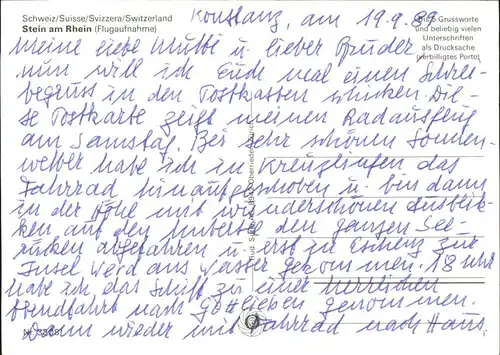 Schweiz/Suisse/Svizzera/Switzerland
Stein am Rhein (Flugaufnahme)
Konstanz, am 19.9.89
Grussworte
und beliebig vielen
Unterschriften
als Drucksache
(verbilligtes Porto)
Meine liebe Mutti u. lieber Bruder
nun will ich Euch mal einen
begruss in den Postkasten schicken. Die-
se Postkarte zeigt meinen Radausflug
am Samstag. Bei sehr schönem Sonnen-
wetter habe ich in Kreuzlingen das
Fahrrad hinaufgeschoben u. bin dann
in der Höhe mit wunderschönen Ausblik-
ken auf den Untersee den ganzen See-
rücken abgefahren u. erst in Eschenz zur
Insel Werd ans Wasser gekommen. 18 Uhr
habe ich das Schiff zu einer herrlichen
Abendfahrt nach Gottlieben genommen.
Dann wieder mit Fahrrad nach Haus.
Nr.